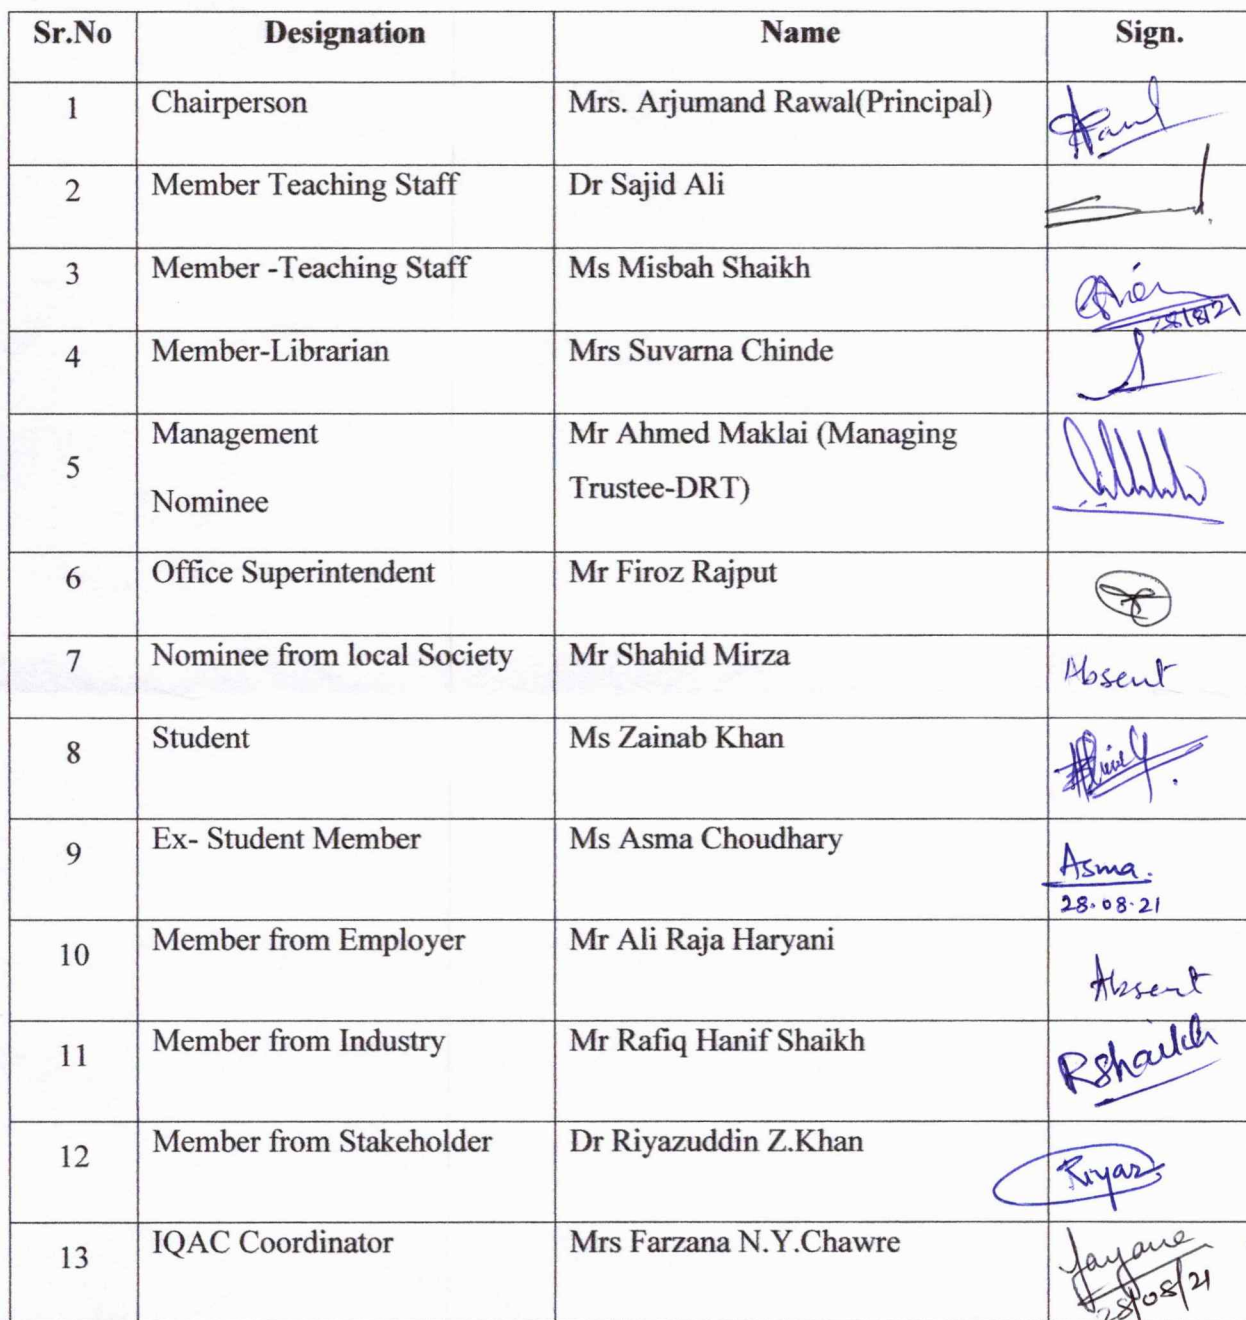 Sr.No Designation Name Sign.
1 Chairperson Mrs. Arjumand Rawal(Principal)
2 Member Teaching Staff Dr Sajid Ali
3 Member -Teaching Staff Ms Misbah Shaikh
28/8/21
4 Member-Librarian Mrs Suvarna Chinde
5 Management Mr Ahmed Maklai (Managing
Nominee Trustee-DRT)
6 Office Superintendent Mr Firoz Rajput
7 Nominee from local Society Mr Shahid Mirza Absent
8 Student Ms Zainab Khan
9 Ex- Student Member Ms Asma Choudhary Asma.
28.08.21
10 Member from Employer Mr Ali Raja Haryani Absent
11 Member from Industry Mr Rafiq Hanif Shaikh RShaikh
12 Member from Stakeholder Dr Riyazuddin Z.Khan Riyaz
13 IQAC Coordinator Mrs Farzana N.Y.Chawre
28/08/21